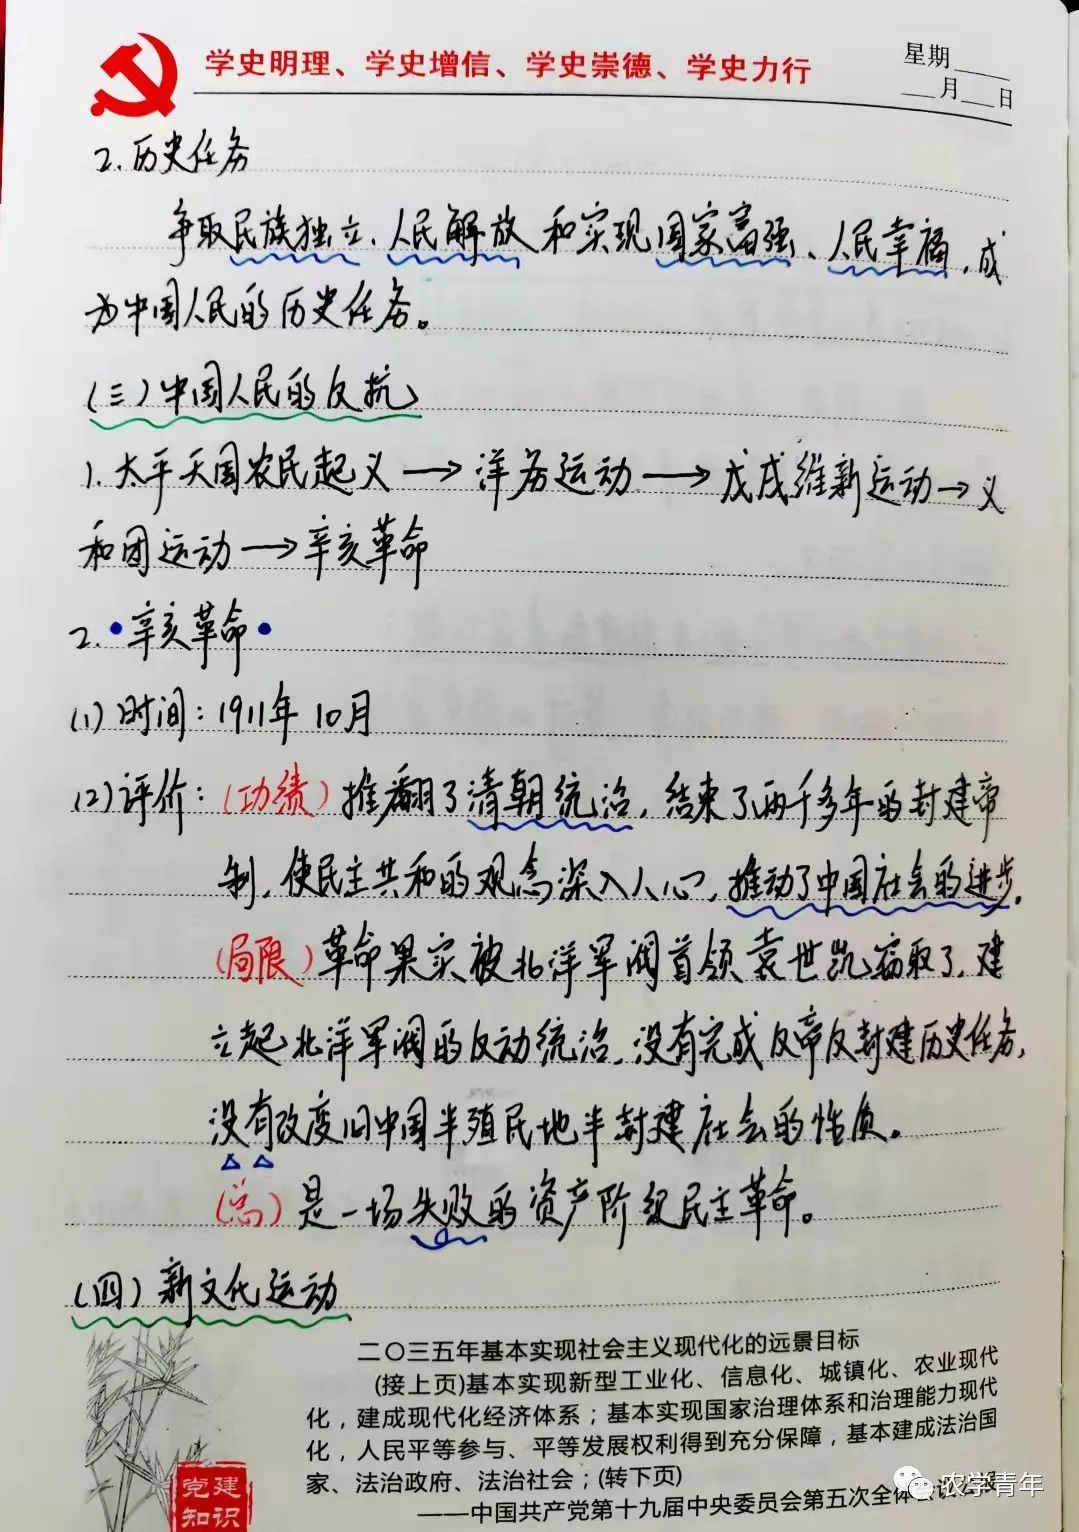 学史明理、学史增信、学史崇德、学史力行
星期____
___月___日
2.历史任务
争取民族独立、人民解放和实现国家富强、人民幸福,成
为中国人民的历史任务。
(三)中国人民的反抗
1.太平天国农民起义→洋务运动→戊戌维新运动→义
和团运动→辛亥革命
2.•辛亥革命•
(1)时间:1911年10月
(2)评价:(功绩)推翻了清朝统治,结束了两千多年的封建帝
制,使民主共和的观念深入人心,推动了中国社会的进步。
(局限)革命果实被北洋军阀首领袁世凯窃取了,建
立起北洋军阀的反动统治,没有完成反帝反封建历史任务,
没有改变旧中国半殖民地半封建社会的性质。
(总)是一场失败的资产阶级民主革命。
(四)新文化运动
二〇三五年基本实现社会主义现代化的远景目标
(接上页)基本实现新型工业化、信息化、城镇化、农业现代
化,建成现代化经济体系;基本实现国家治理体系和治理能力现代
化,人民平等参与、平等发展权利得到充分保障,基本建成法治国
家、法治政府、法治社会;(转下页)
——中国共产党第十九届中央委员会第五次全体
党建
知识
农学青年